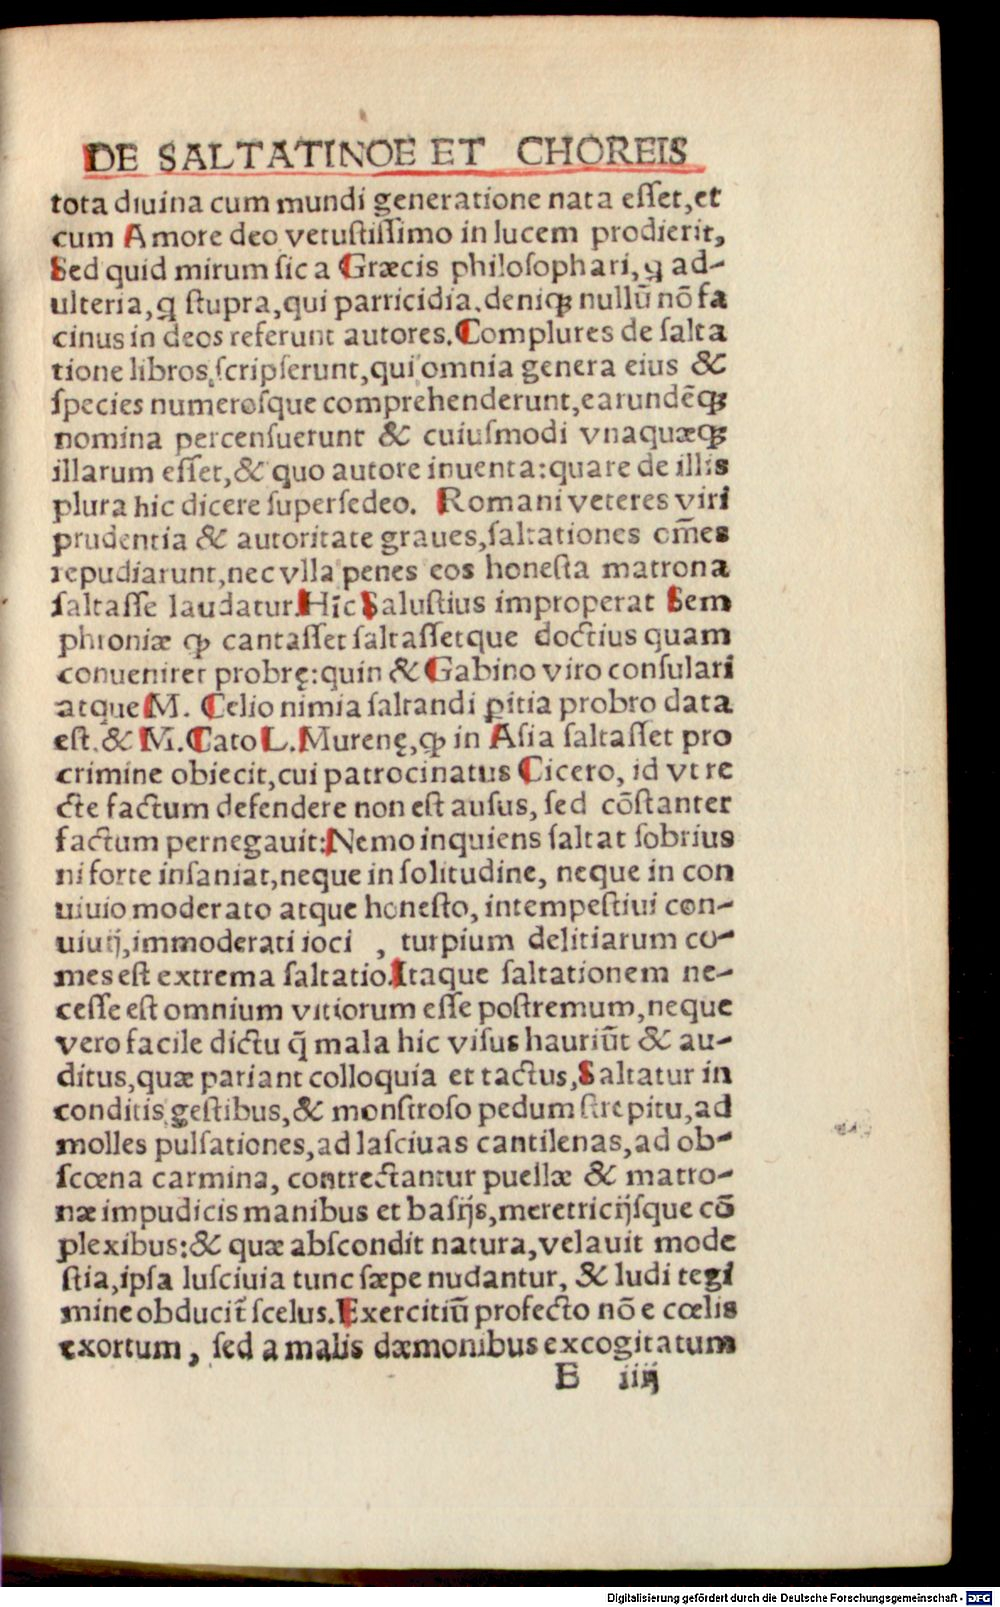 DE SALTATINOE ET CHOREIS
tota diuina cum mundi generatione nata eſſet,et
cum Amore deo vetuſtiſſimo in lucem prodierit,
Sed quid mirum ſic a Græcis philoſophari, ꝗ ad-
ulteria,ꝗ ſtupra,qui parricidia.deniqꝫ nullū nō fa
cinus in deos referunt autores.Complures de ſalta
tione libros ſcripſerunt,qui omnia genera eius &
ſpecies numeroſque comprehenderunt,earundēqꝫ
nomina percenſuerunt & cuiuſmodi vnaquæqꝫ
illarum eſſet,& quo autore inuenta:quare de illis
plura hic dicere ſuperſedeo. Romani veteres viri
prudentia & autoritate graues,ſaltationes om̄es
repudiarunt,nec vlla penes eos honeſta matrona
ſaltaſſe laudatur.Hīc Saluſtius improperat Sem
phroniæ ꝙ cantaſſet ſaltaſſetque doctius quam
conueniret probrę:quin & Gabino viro conſulari
atque M. Celio nimia ſaltandi ꝑitia probro data
eſt.& M.Cato L.Murenę,ꝙ in Aſia ſaltaſſet pro
crimine obiecit,cui patrocinatus Cicero, id vt re
cte factum defendere non eſt auſus, ſed cōſtanter
factum pernegauit:Nemo inquiens ſaltat ſobrius
ni forte inſaniat,neque in ſolitudine, neque in con
uiuio moderato atque honeſto, intempeſtiui con-
uiuij,immoderati ioci , turpium delitiarum co-
mes eſt extrema ſaltatio.Itaque ſaltationem ne-
ceſſe eſt omnium vitiorum eſſe poſtremum,neque
vero facile dictu q̄ mala hic viſus hauriūt & au-
ditus,quæ pariant colloquia et tactus,Saltatur in
conditis geſtibus,& monſtroſo pedum ſtrepitu,ad
molles pulſationes,ad laſciuas cantilenas,ad ob-
ſcœna carmina, contrectantur puellæ & matro-
næ impudicis manibus et baſijs,meretricijſque cō
plexibus:& quæ abſcondit natura,velauit mode
ſtia,ipſa luſciuia tunc ſæpe nudantur, & ludi tegi
mine obducit̄ ſcelus.Exercitiū profecto nō e cœlis
exortum, ſed a malis dæmonibus excogitatum
E iiij
Digitalisierung gefördert durch die Deutsche Forschungsgemeinschaft - DFG